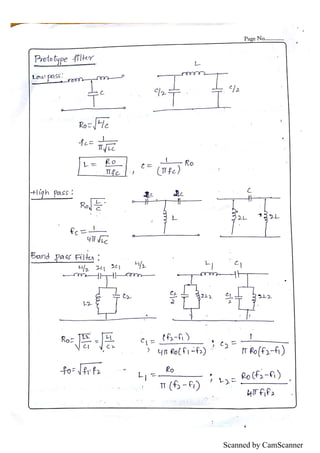 Page No..........
Prototype filter
Low pass:
L
C
C/2
C/2
R₀=√L/C
fc= 1/π√LC
L = R₀/πfc , C= 1/(πfc)R₀
High pass:
2C 2C
C
R₀√L/C
L
2L 2L
fc= 1/4π√LC
Band pass Filter:
L1/2 2C1 2C1 L1/2
L1 C1
L2
C2
C2/2 2L2 C2/2 2L2
R₀=√L2/C1 = √L1/C2
C1 = (f2-f1)/4πR₀(f1-f2) ; C2 = 1/πR₀(f2-f1)
f₀=√f1·f2
L1 = R₀/π(f2-f1) ; L2= R₀(f2-f1)/4πf1f2
Scanned by CamScanner